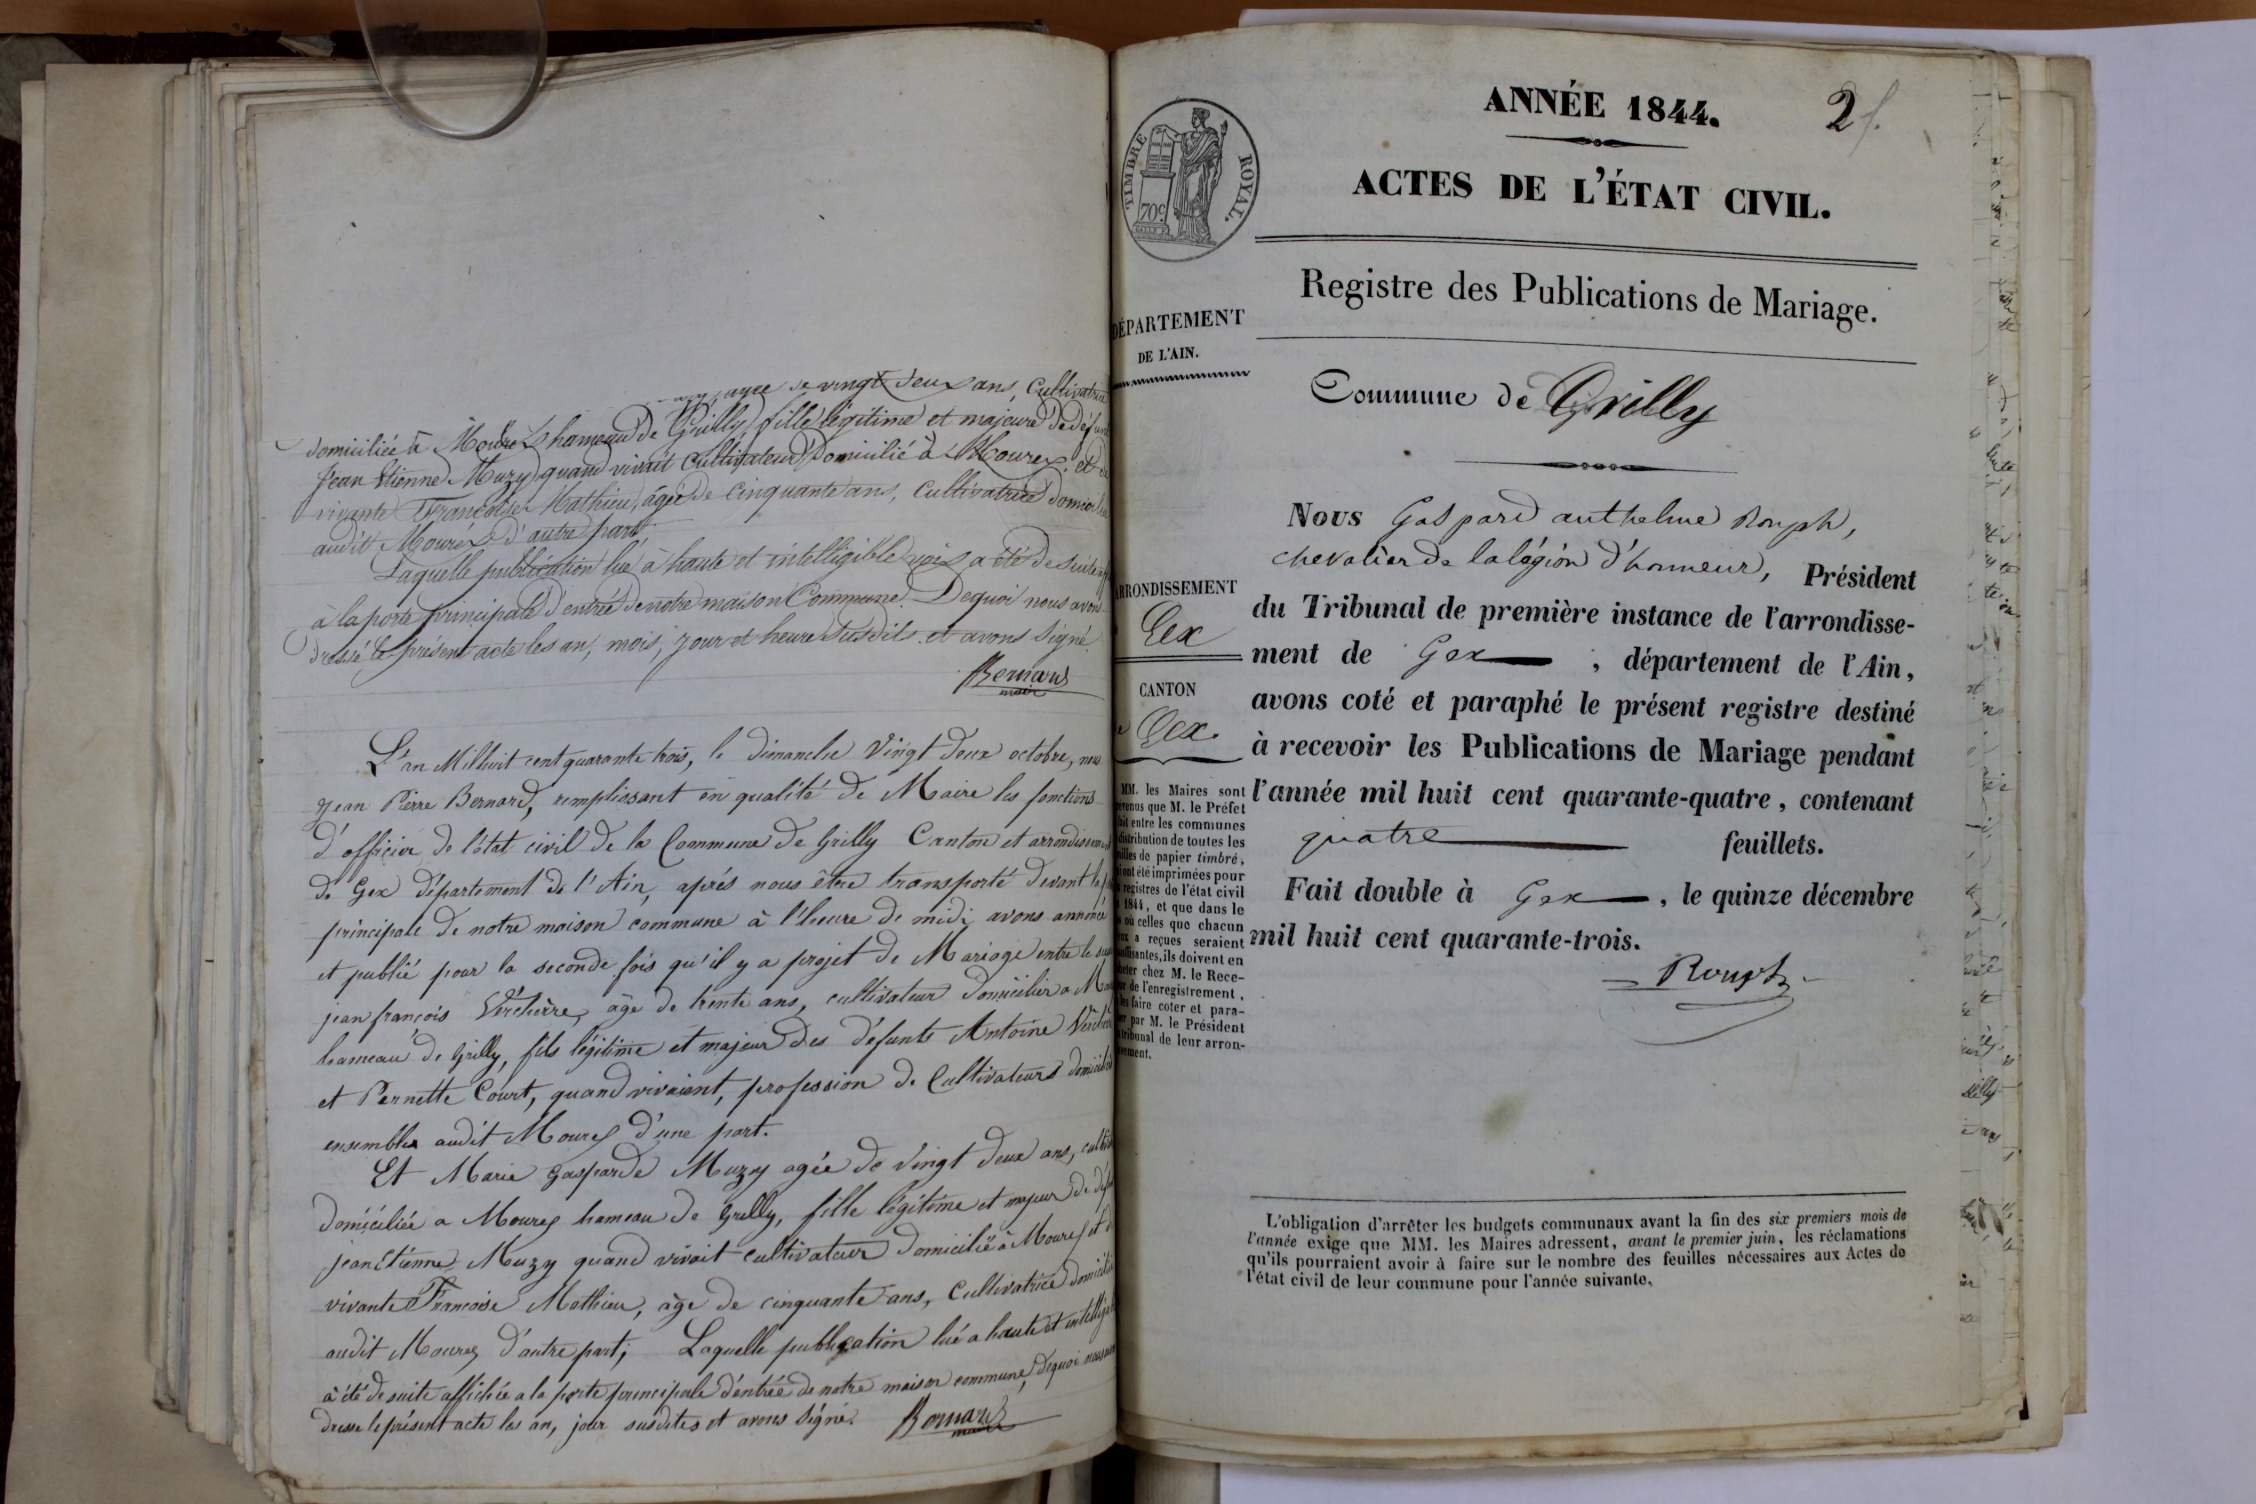 agée de vingt deux ans, Cultivatrice
domiciliée à Mourex hameau de Grilly, fille légitime et majeure de défunt
Jean Etienne Muzy quand vivait cultivateur Domicilié à Mourex, et de
vivante Francoise Mathieu, âgée de cinquante ans, Cultivatrice domiciliée
audit Mourex d'autre part.
Laquelle publication lué à haute et intelligible voix a été de suite
à la porte principale d'entrée de notre maison Commune. Dequoi nous avons
dressé le présent acte les an, mois, jour et heure susdits et avons signé
Bernard
maire
L'an Milhuit cent quarante trois, le dimanche vingt deux octobre, nous
Jean Pierre Bernard, remplissant en qualité de Maire les fonctions
d'officier de l'état civil de la Commune de Grilly Canton et arrondissement
de Gex département de l'Ain, aprés nous être transporté devant la
principale de notre maison commune à l'heure de midi avons annoncé
et publié pour la seconde fois qu'il y a projet de Mariage entre le
jean françois Verchère, âge de trente ans, cultivateur domicilier a
hameau de Grilly, fils légitime et majeur des défunts Antoine
et Pernette Court, quand vivaient, profession de Cultivateurs
ensembles audit Mourex d'une part.
Et Marie Gasparde Muzy agée de vingt deux ans,
domiciliée a Mourex hameau de Grilly, fille légitime et majeur de
jean Etienne Muzy quand vivait cultivateur domicilié à Mourex et
vivante Francoise Mathieu, âge de cinquante ans, Cultivatrice
audit Mourex d'autre part; Laquelle publication lué a haute et
à été de suite affichée a la porte principale d'entrée de notre maison commune, Dequoi
dresse le présent acte les an, jour susdites et avons signé. Bernard
maire
ANNÉE 1844.
2 f.
ACTES DE L'ÉTAT CIVIL.
TIMBRE ROYAL.
70c.
Registre des Publications de Mariage.
DÉPARTEMENT
DE L'AIN.
Commune de Grilly
ARRONDISSEMENT
Gex
CANTON
Gex.
Nous Gaspard anthelme Rouph,
chevalier de la légion d'honneur, Président
du Tribunal de première instance de l'arrondisse-
ment de Gex , département de l'Ain,
avons coté et paraphé le présent registre destiné
à recevoir les Publications de Mariage pendant
l'année mil huit cent quarante-quatre, contenant
quatre feuillets.
Fait double à Gex , le quinze décembre
mil huit cent quarante-trois.
Rouph
MM. les Maires sont
que M. le Préfet
entre les communes
distribution de toutes les
de papier timbré,
ont été imprimées pour
registres de l'état civil
1844, et que dans le
où celles que chacun
a reçues seraient
ils doivent en
chez M. le Rece-
de l'enregistrement,
faire coter et para-
par M. le Président
tribunal de leur arron-
L'obligation d'arrêter les budgets communaux avant la fin des six premiers mois de
l'année exige que MM. les Maires adressent, avant le premier juin, les réclamations
qu'ils pourraient avoir à faire sur le nombre des feuilles nécessaires aux Actes de
l'état civil de leur commune pour l'année suivante.